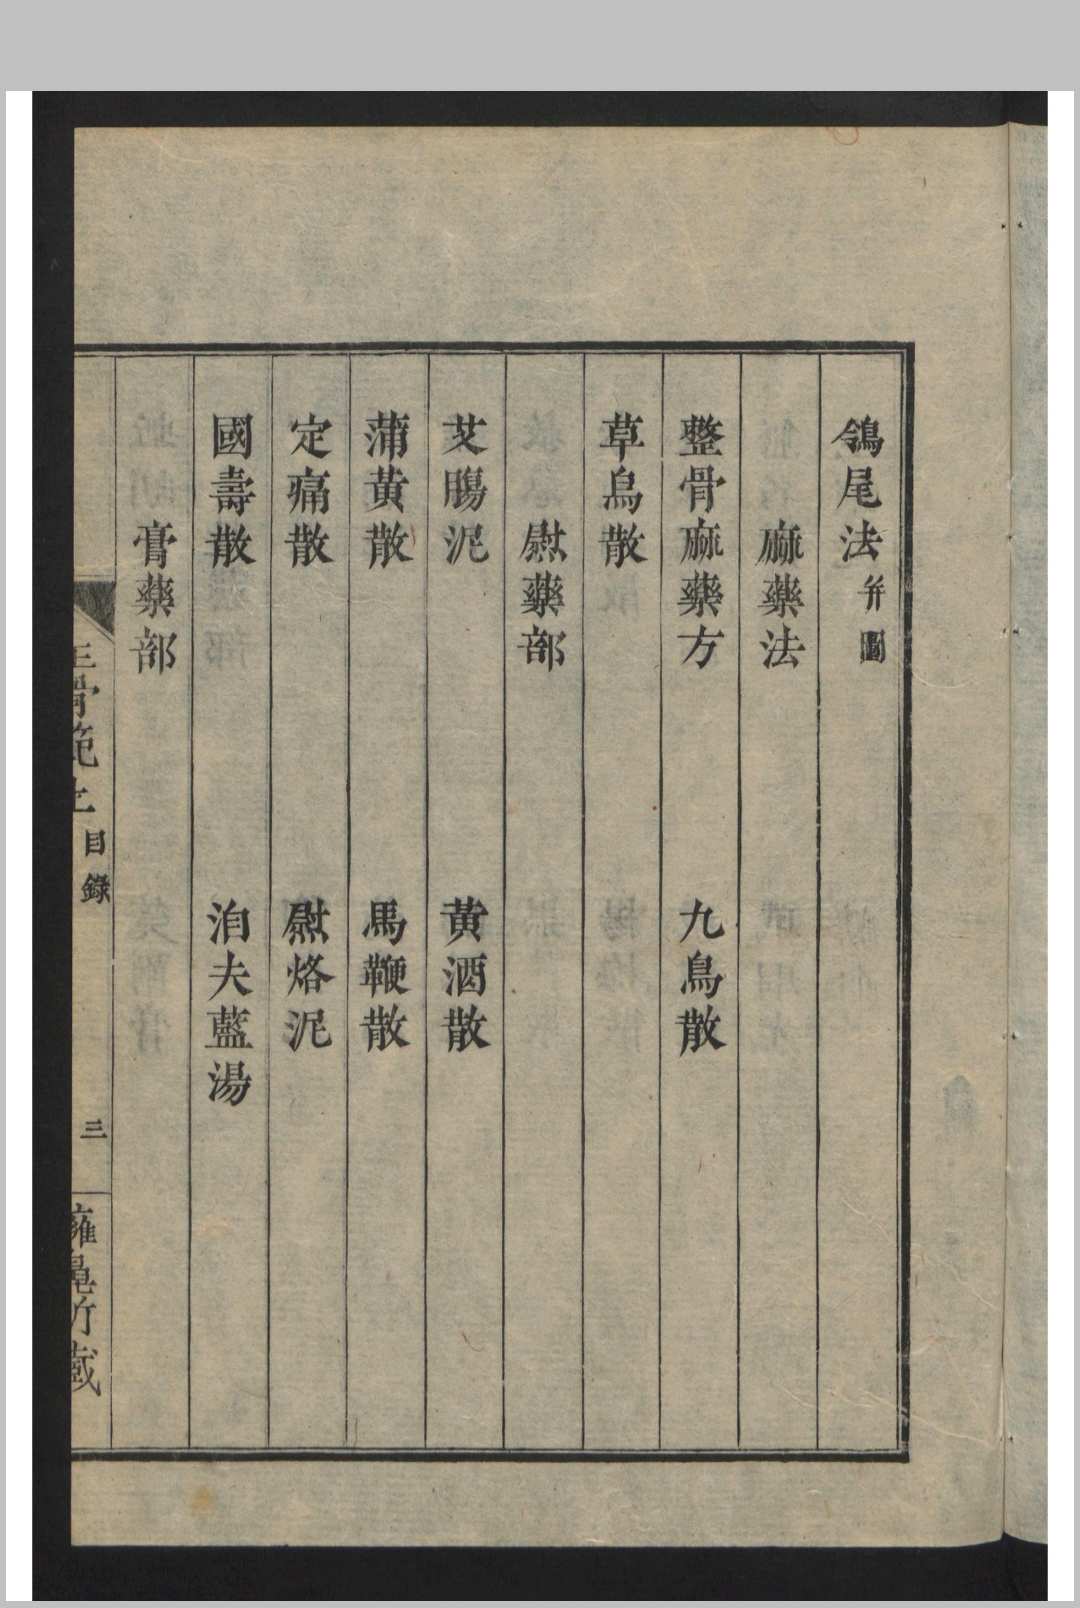 鴒尾法 并圖
麻藥法
整骨麻藥方 九烏散
草烏散
熨藥部
艾腸泥 黃酒散
蒲黃散 馬鞭散
定痛散 熨烙泥
國壽散 泊夫藍湯
膏藥部
骨範上 目錄 三